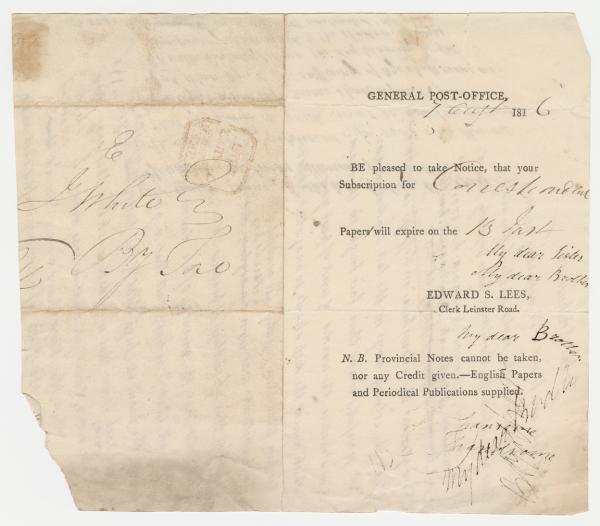 E
J White Esq
GENERAL POST-OFFICE,
7 Augt 1816
BE pleased to take Notice, that your
Subscription for Correspondent
Papers will expire on the 13 Inst
My dear Sister
My dear Brother
EDWARD S. LEES,
Clerk Leinster Road.
My dear Brother
N. B. Provincial Notes cannot be taken,
nor any Credit given.—English Papers
and Periodical Publications supplied.
My dear